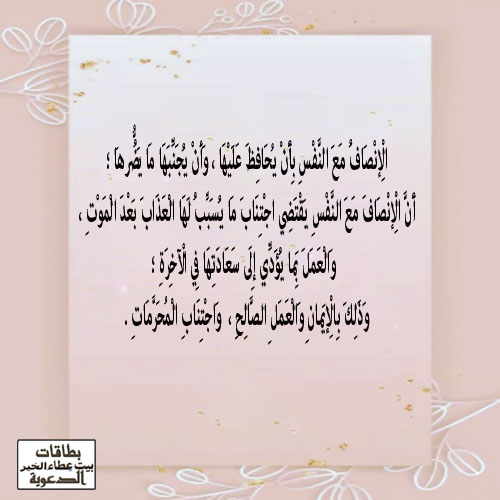 الْإِنْصَافُ مَعَ النَّفْسِ بِأَنْ يُحَافِظَ عَلَيْهَا ، وَأَنْ يُجَنِّبَهَا مَا يَضُّرُهَا ؛
أَنَّ الْإِنْصَافَ مَعَ النَّفْسِ يَقْتَضِي اجْتِنَابَ مَا يُسَبِّبُ لَهَا الْعَذَابَ بَعْدَ الْمَوْتِ ،
وَالْعَمَلَ بِمَا يُؤَدِّي إِلَى سَعَادَتِهَا فِي الْآخِرَةِ ؛
وَذَلِكَ بِالْإِيمَانِ وَالْعَمَلِ الصَّالِحِ ، وَاجْتِنَابِ الْمُحَرَّمَاتِ .
بطاقات
بيت عطاء الخير
الدعوية